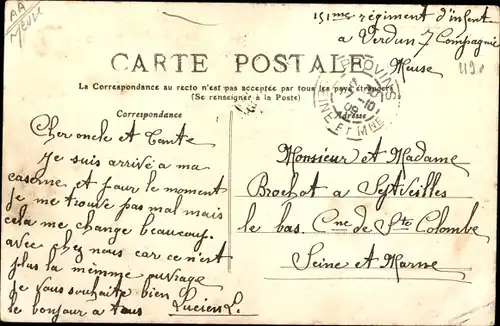 151me régiment d'infent
a Verdun 7 Compagnie
Meuse
CARTE POSTALE
La Correspondance au recto n'est pas acceptée par tous les pays étrangers
(Se renseigner à la Poste)
PROVINS
7-10
09
SEINE ET MNE
Correspondance
Adresse
Cher oncle et Tante
Je suis arrivé a ma
caserne et pour le moment
Je me trouve pas mal mais
cela me change beaucoup.
avec chez nous car ce n'est
plus la mimme ouvrage
Je vous souhaite bien
le bonjour a tous Lucien L.
Monsieur et Madame
Brochot a Septveilles
le bas. Cne de Ste Colombe
Seine et Marne